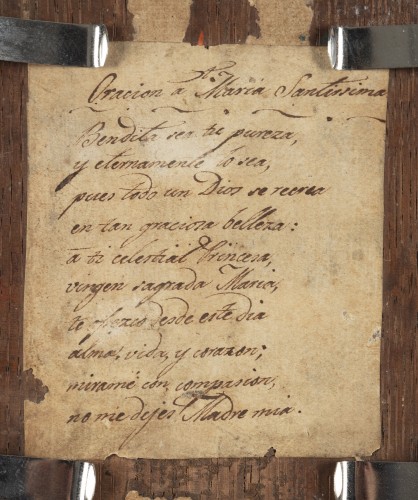 Oracion a Maria Santissima
Bendita sea tu pureza,
y eternamente lo sea,
pues todo un Dios se recrea
en tan graciosa belleza:
a ti celestial Princesa,
virgen sagrada Maria,
te ofrezco desde este dia
alma, vida, y corazon;
mirame con compasion,
no me dejes Madre mia.